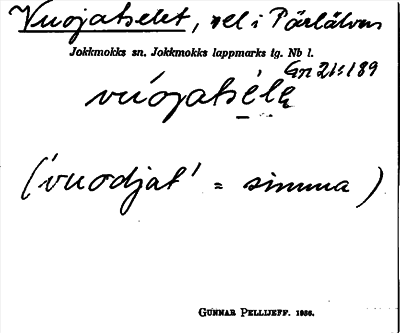 Vuojatselet, sel i Pärlälven
Jokkmokks sn. Jokkmokks lappmarks tg. Nb l.
Gn 21:189
vuójatsélę
('vuodjat' = simma)
GUNNAR PELLIJEFF. 1956.